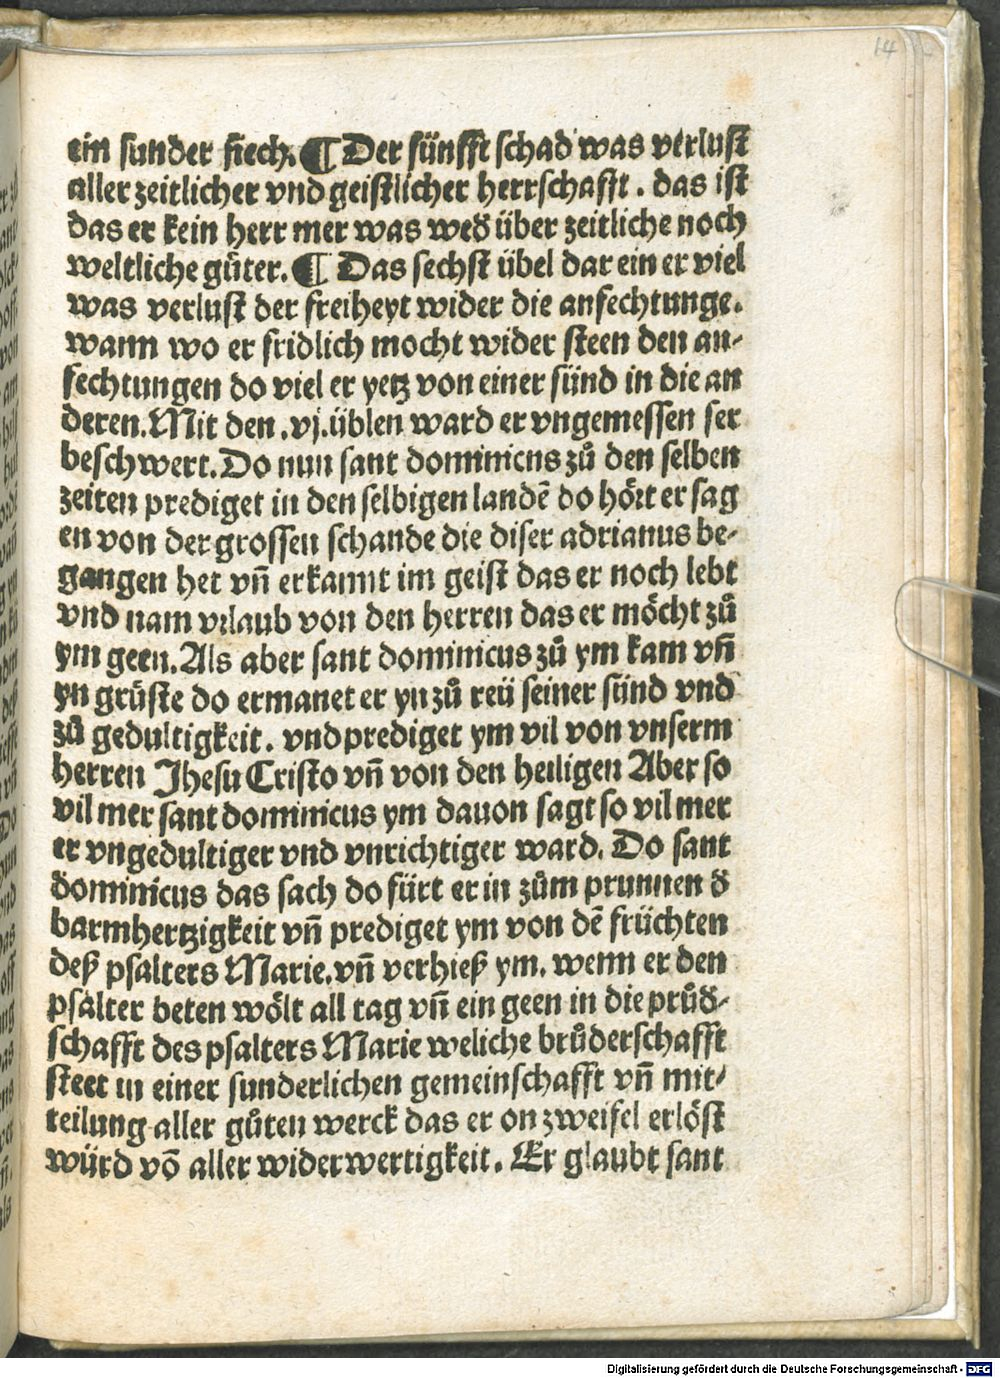 14
ein sunder siech. ¶ Der fünfft schad was verlust
aller zeitlicher vnd geistlicher herrschafft. das ist
das er kein herr mer was wed̕ über zeitliche noch
weltliche gůter. ¶ Das sechst übel dar ein er viel
was verlust der freiheyt wider die anfechtunge.
wann wo er fridlich mocht wider steen den an-
fechtungen do viel er yetz von einer sünd in die an
deren. Mit den .vj. üblen ward er vngemessen ser
beschwert. Do nun sant dominicus zů den selben
zeiten prediget in den selbigen landē do hört er sag
en von der grossen schande die diser adrianus be-
gangen het vñ erkannt im geist das er noch lebt
vnd nam vrlaub von den herren das er möcht zů
ym geen. Als aber sant dominicus zů ym kam vñ
yn grüste do ermanet er yn zů reü seiner sünd vnd
zů gedultigkeit. vnd prediget ym vil von vnserm
herren Jhesu Cristo vñ von den heiligen Aber so
vil mer sant dominicus ym dauon sagt so vil mer
er vngedultiger vnd vnrichtiger ward. Do sant
dominicus das sach do fürt er in zům prunnen d̕
barmhertzigkeit vñ prediget ym von dē früchten
deß psalters Marie. vñ verhieß ym. wenn er den
psalter beten wölt all tag vñ ein geen in die průd̕-
schafft des psalters Marie weliche brůderschafft
steet in einer sunderlichen gemeinschafft vñ mit-
teilung aller gůten werck das er on zweifel erlöst
würd vō aller widerwertigkeit. Er glaubt sant
Digitalisierung gefördert durch die Deutsche Forschungsgemeinschaft - DFG